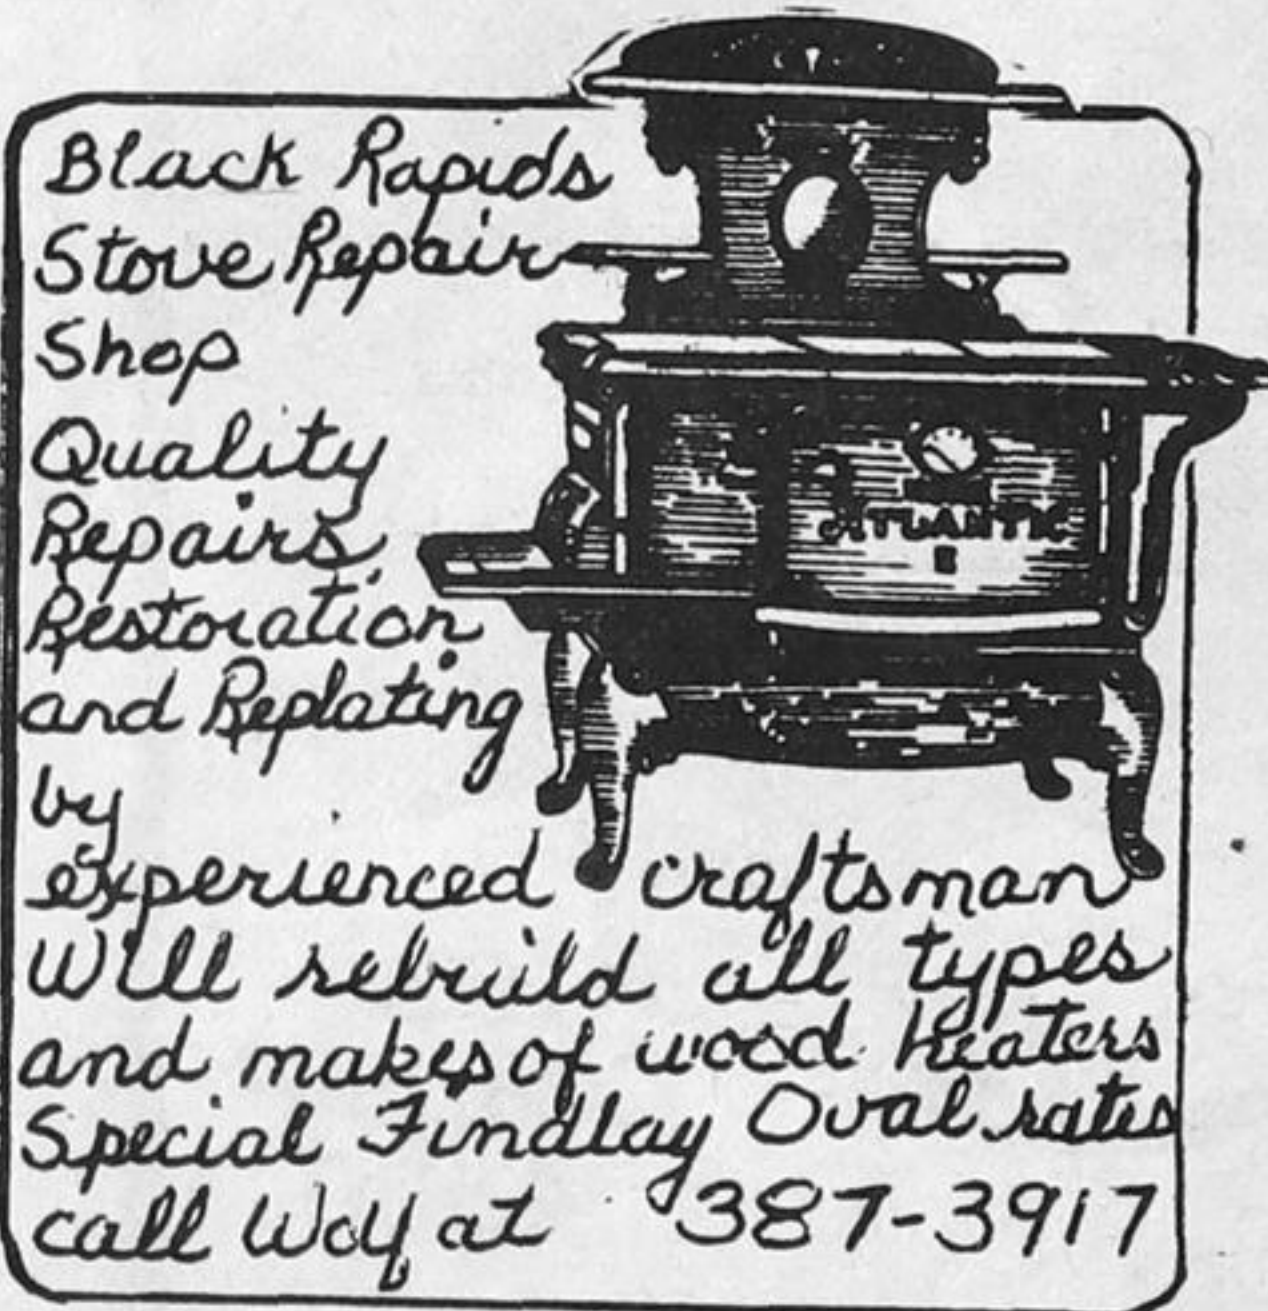 Black Rapids
Stove Repair
Shop
Quality
Repairs
Restoration
and Replating
by
experienced craftsman
Will rebuild all types
and makes of wood heaters
Special Findlay Oval rates
call Wolf at 387-3917
ATLANTIC